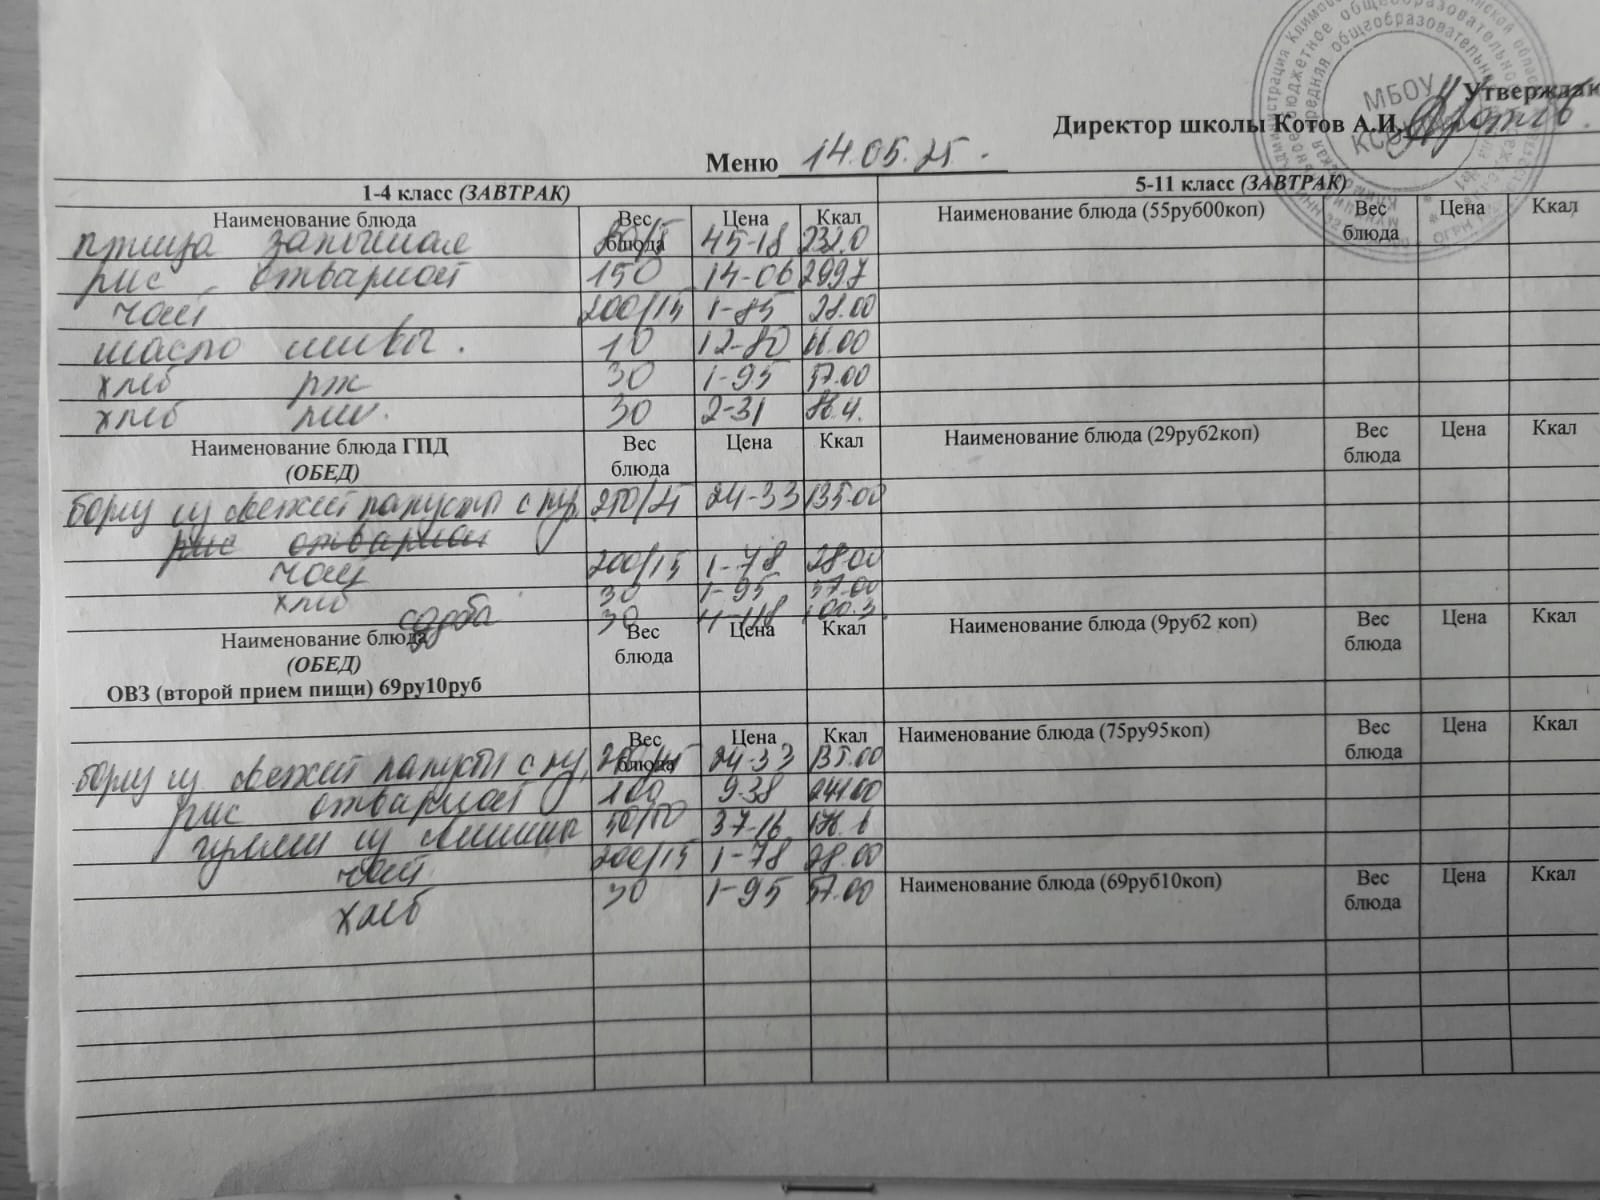 Утверждаю
Директор школы Котов А.И.
МБОУ
Меню 14.05.25.
1-4 класс (ЗАВТРАК) 5-11 класс (ЗАВТРАК)
Наименование блюда Вес блюда Цена Ккал Наименование блюда (55руб00коп) Вес блюда Цена Ккал
птица 45-18 232.0
рис отварной 150 14-06 299.7
чай 200/15 1-85 28.00
масло сливы. 10 12-80
хлеб рж 30 1-95 57.00
хлеб пш. 30 2-31
Наименование блюда ГПД (ОБЕД) Вес блюда Цена Ккал Наименование блюда (29руб2коп) Вес блюда Цена Ккал
борщ из свежей капусты с кур. 24-33 135.00
рис отварной
чай 200/15 1-78 28.00
хлеб 30 1-95 57.00
сдоба 30 100.3
Наименование блюда (ОБЕД) Вес блюда Цена Ккал Наименование блюда (9руб2 коп) Вес блюда Цена Ккал
ОВЗ (второй прием пищи) 69ру10руб
Вес блюда Цена Ккал Наименование блюда (75ру95коп) Вес блюда Цена Ккал
борщ из свежей капусты с кур. 24-33 135.00
рис отварной 100 9-38 241.00
гуляш из свинины 50/50 37-16
чай 200/15 1-78 28.00
хлеб 30 1-95 57.00
Наименование блюда (69руб10коп) Вес блюда Цена Ккал